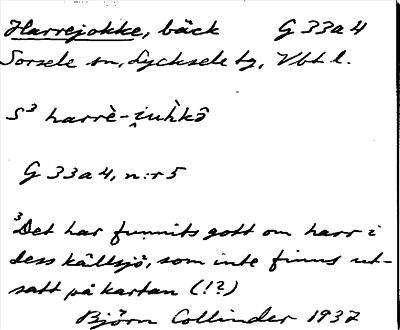 Harrejokke, bäck G 33a4
Sorsele sn, Lycksele tg, Vbt l.
S³ harrè-i̯uh̀kô
G 33a4, n:r 5
³Det har funnits gott om harr i
dess källsjö, som inte finns ut-
satt på kartan (!?)
Björn Collinder 1937